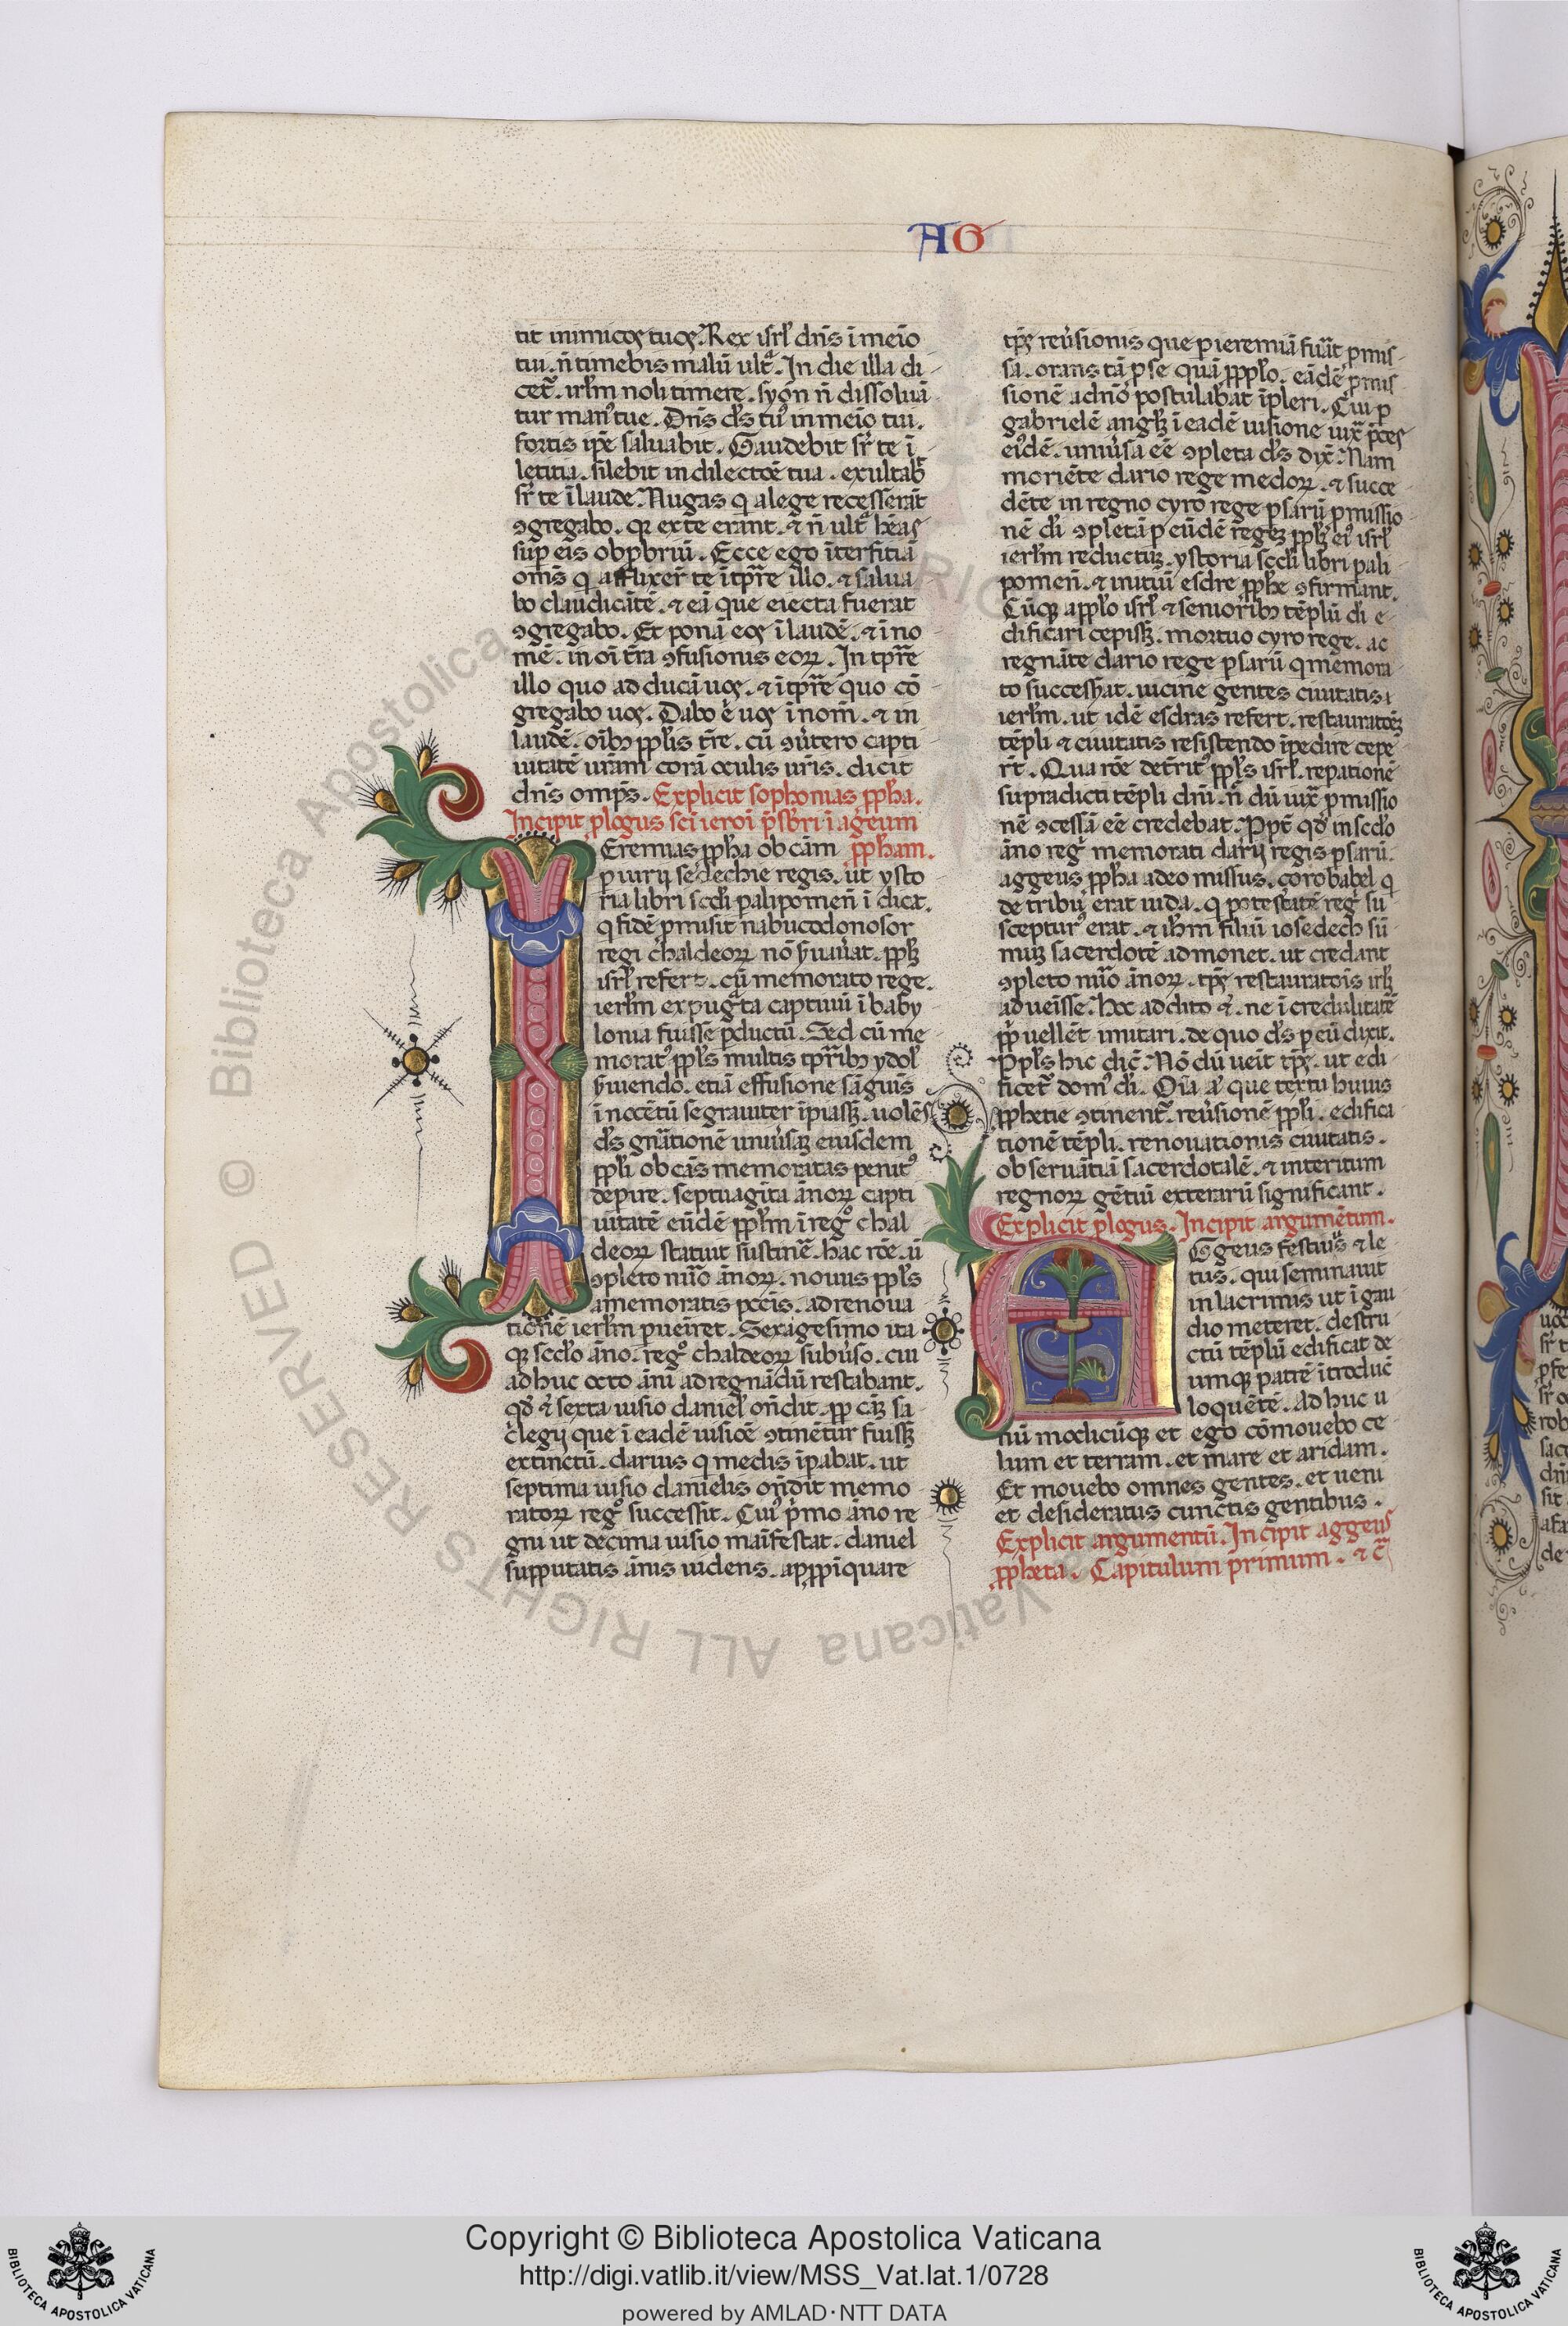 AG
tit inimicos tuos. Rex isrl' dn̄s ī meio
tui. n̄ timebis malū ult᷑. In die illa di-
cet᷑. irl'm noli timere. syon n̄ dissoluā
tur manꝰ tue. Dn̄s d's tuꝰ in meio tui.
fortis ip̄e saluabit. Gaudebit sr̄ te ī
letitia. silebit in dilectōe tua. exultab̄
sr̄ te ī laude. Nugas q̄ a lege recesserāt
ꝯgregabo. qr ex te erant. ⁊ n̄ ult᷑ hēas
suꝑ eis obꝓbriū. Ecce ego īterfitiā
om̄s q̄ afflixer̄ te ī tp̄re illo. ⁊ salua
bo claudicātē. ⁊ eā que eiecta fuerat
ꝯgregabo. Et ponā eos ī laudē. ⁊ ī no
mē. in oī t̄ra ꝯfusionis eoꝝ. In tp̄re
illo quo adducā uos. ⁊ ī tp̄re quo cō-
gregabo uos. Dabo ē uos ī nom̄. ⁊ in
laudē. oībꝫ ppl'is t̄re. cū ꝯūtero capti-
uitatē uram corā oculis ur̄is. dicit
dn̄s omp̄s. Explicit sophonias ꝓph̄a.
Incipit ꝓlogus sc̄i ieroī p̄sbr̄i ī ageum
Eremias ꝓph̄a ob cām ꝓph̄am.
ꝑiurij sedechie regis. ut ysto
ria libri sc̄di palipomen̄ ī dicat.
q̄ fidē ꝓmisit nabucodonosor
regi chaldeoꝝ nō s̄uauāt. ppl'ꝫ
isrl' refert. cū memorato rege.
ierl'm expug᷑ta captiuū ī baby
lonia fuisse ꝑductū. Sed cū me
moratꝰ ppl's multis tp̄ribꝫ ydol'
s̄uiendo. etiā effusione sāguīs
īnocētū se grauiter īpiasꝫ. uolēs
d's gn̄ationē uniūsaꝫ eiusdem
ppl'i ob cās memoratas penitꝰ
deꝑire. septuagīta ānoꝝ capti
uitatē eūdē ppl'm ī reg° chal
deoꝝ statuit sustinē. hac rōe. ū
ꝯpleto nūo ānoꝝ. nouus ppl's
a memoratis pcc̄is. ad renoua
tionē ierl'm ꝑueīret. Sexagesimo ita
qꝫ sc̄do āno. reg° chaldeoꝝ subūso. cui
ad huc octo āni ad regnādū restabant.
qd' ⁊ sexta uisio daniel' on̄dit. ꝓp cāꝫ sa
c̄legij que ī eadē uisiōe ꝯtinētur fuisꝫ
extinctū. darius q̄ medis īꝑabat. ut
septima uisio danielis on̄dit memo
ratoꝝ reg° successit. Cuiꝰ p̄mo āno re
gni ut decima uisio maīfestat. daniel
supputatis ānis uidens. apꝓpīquare
tp̄s reūsionis que ꝑ ieremiā fuāt ꝓmis-
sa. orans tā ꝑ se quā ꝓ ppl'o. eādē ꝓmis
sionē a dn̄o postulabat īpleri. Cui ꝑ
gabrielē angl'ꝫ ī eadē uisione iux᷑ p̄ces
eiꝰdē. uniūsa eē ꝯpleta d's dix̄. Nam
moriēte dario rege medoꝝ. ⁊ succe
dēte in regno cyro rege ꝑsarū ꝓmissio
nē d'i ꝯpletā ꝑ eūdē regēꝫ ppl'ꝫ eiꝰ isrl'
ierl'm reductuꝫ. ystoria sc̄di libri pali
pomen̄. ⁊ initiū esdre ꝓph̄e ꝯfirmant.
Cūqꝫ a ppl'o isrl' ⁊ senioribꝫ tēplū d'i e-
dificari cepisꝫ. mortuo cyro rege. ac
regnāte dario rege ꝑsarū q̄ memora
to successat. uicine gentes ciuitatis i
ierl'm. ut idē esdras refert. restauratoēꝫ
tēpli ⁊ ciuitatis resistendo īpedire cepe
r̄t. Qua rōe det̄ritꝰ ppl's isrl'. reꝑationē
supradicti tēpli dnī. n̄ dū iux᷑ ꝓmissio
nē ꝯcessā eē credebat. Ꝓpt̄ qd' in sc̄do
āno reg᷑ memorati darij regis ꝑsarū.
aggeus ꝓph̄a a deo missus. corobabel q̄
de tribu erat iuda. q̄ potestatē reg᷑ su
scepturꝰ erat. ⁊ ih̄m filiū iosedech sū
muꝫ sacerdotē admonet. ut credant
ꝯpleto nūo ānoꝝ. tp̄s restauratōis irl'ꝫ
adueīsse. hoc addito ⁊. ne ī credulitatē
ꝓp̄ uellēt imitari. de quo d's ꝑ eū dixit.
Ppl's hic dic̄. Nō dū ueīt tp̄s. ut edi
ficet᷑ domꝰ d'i. Oīa aꝰ que textu huius
ꝓphetie ꝯtinent᷑. reūsionē ppl'i. edifica
tionē tēpli. renouationis ciuitatis.
obseruātiā sacerdotalē. ⁊ interitum
regnoꝝ gētiū exterarū significant.
Explicit ꝓlogus. Incipit argumētum.
Ggeus festiuꝰ ⁊ le
tus. qui seminauit
in lacrimis ut ī gau
dio meteret. destru
ctū tēplū edificat de
umqꝫ patrē ītroduc̄
loquētē. ad huc u
nū modicūqꝫ et ego cōmouebo ce
lum et terram. et mare et aridam.
Et mouebo omnes gentes. et ueni
et desideratus cunctis gentibus.
Explicit argumentū. Incipit aggeus
ꝓpheta. Capitulum primum. ⁊ c̄
© Biblioteca Apostolica Vaticana ALL RIGHTS RESERVED
Copyright © Biblioteca Apostolica Vaticana
http://digi.vatlib.it/view/MSS_Vat.lat.1/0728
powered by AMLAD·NTT DATA
BIBLIOTECA APOSTOLICA VATICANA
BIBLIOTECA APOSTOLICA VATICANA